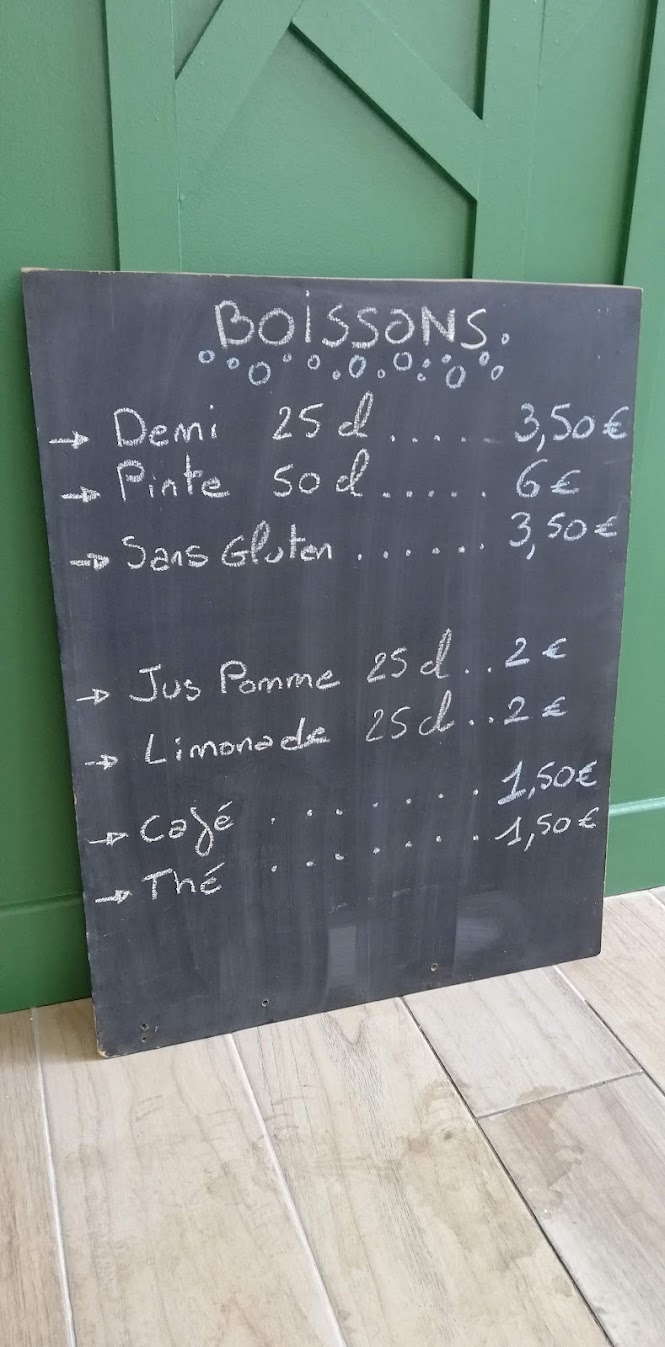 BOISSONS
→ Demi 25 cl ..... 3,50 €
→ Pinte 50 cl ..... 6 €
→ Sans Gluten ...... 3,50 €
→ Jus Pomme 25 cl .. 2 €
→ Limonade 25 cl .. 2 €
→ Café ...... 1,50 €
→ Thé ...... 1,50 €